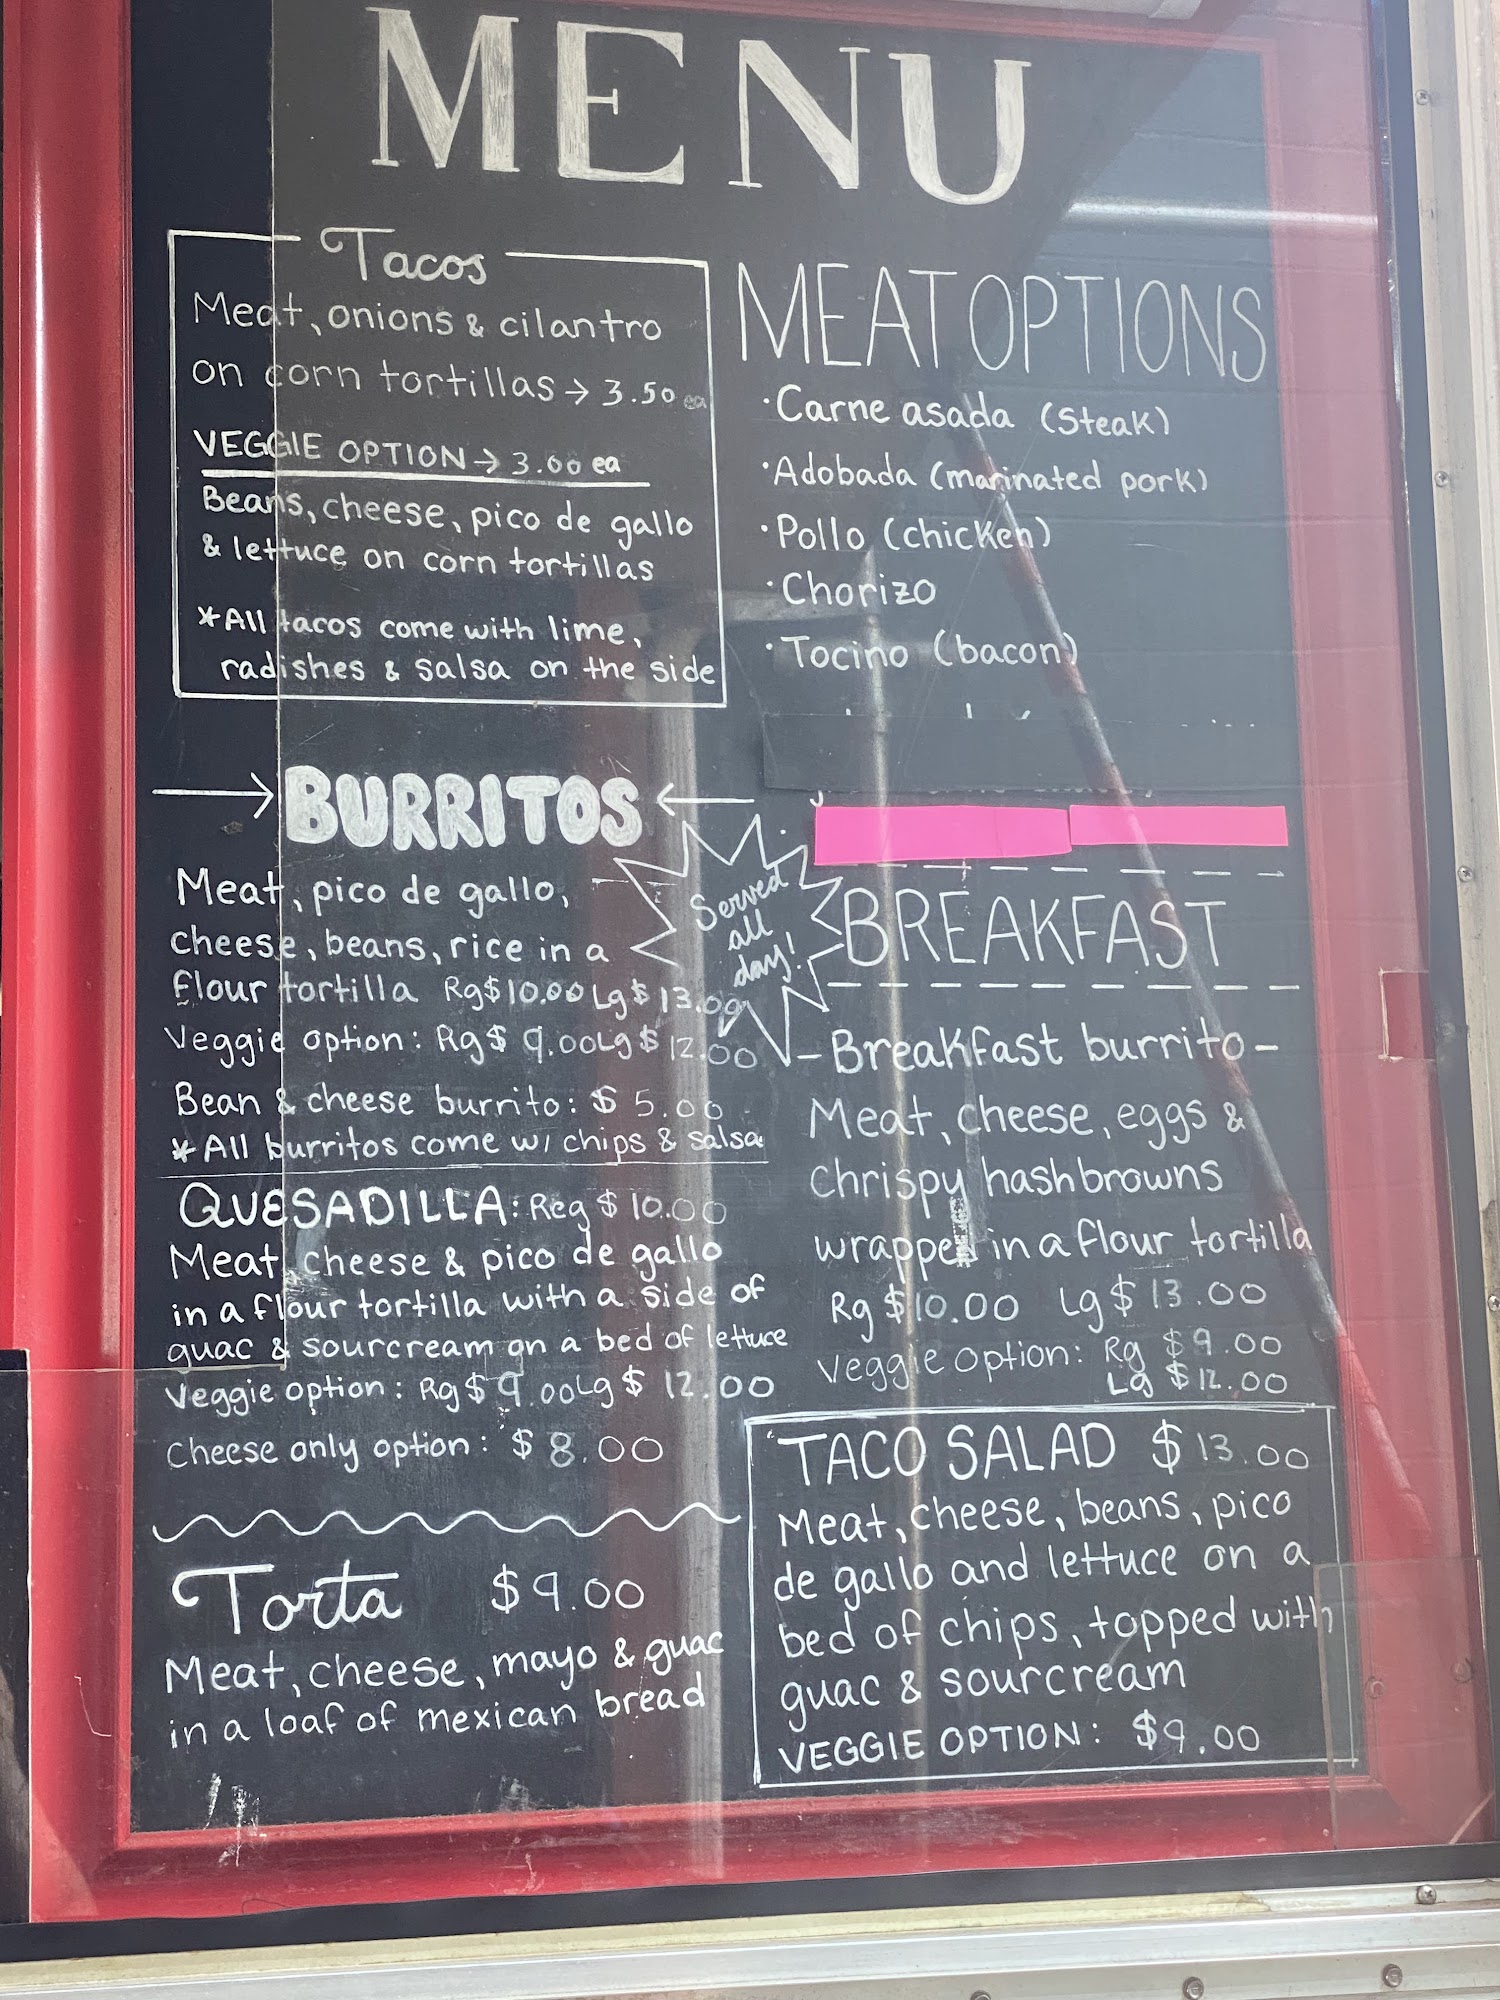 MENU
Tacos
Meat, onions & cilantro
on corn tortillas → 3.50 ea
VEGGIE OPTION → 3.00 ea
Beans, cheese, pico de gallo
& lettuce on corn tortillas
*All tacos come with lime,
radishes & salsa on the side
MEAT OPTIONS
• Carne asada (steak)
• Adobada (marinated pork)
• Pollo (chicken)
• Chorizo
• Tocino (bacon)
→ BURRITOS ←
Meat, pico de gallo,
cheese, beans, rice in a
flour tortilla Rg$10.00 Lg$13.00
Veggie option: Rg$ 9.00 Lg$ 12.00
Bean & cheese burrito: $ 5.00
*All burritos come w/ chips & salsa
QUESADILLA: Reg $10.00
Meat, cheese & pico de gallo
in a flour tortilla with a side of
guac & sourcream on a bed of lettuce
Veggie option: Rg$ 9.00 Lg$ 12.00
Cheese only option: $8.00
Torta $9.00
Meat, cheese, mayo & guac
in a loaf of mexican bread
Served
all
day!
BREAKFAST
- Breakfast burrito -
Meat, cheese, eggs &
chrispy hashbrowns
wrapped in a flour tortilla
Rg $10.00 Lg $13.00
Veggie option: Rg $9.00
Lg $12.00
TACO SALAD $13.00
Meat, cheese, beans, pico
de gallo and lettuce on a
bed of chips, topped with
guac & sourcream
VEGGIE OPTION: $9.00